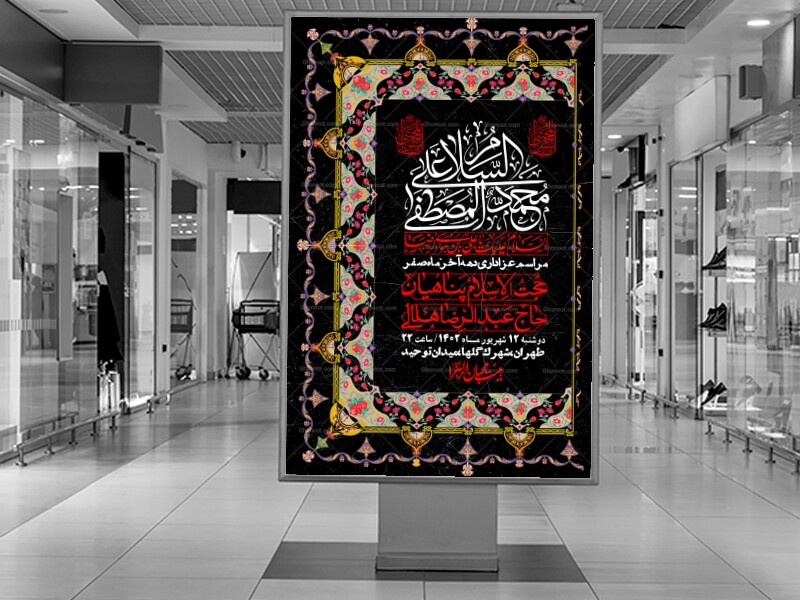 السلام علی
محمد المصطفی
السلام علیک یا علی بن موسی الرضا
مراسم عزاداری دهه آخر ماه صفر
حجت الاسلام پناهیان
حاج عبدالرضا هلالی
دوشنبه ۱۲ شهریور ماه ۱۴۰۲/ ساعت ۲۲
طهران شهرک گلها میدان توحید